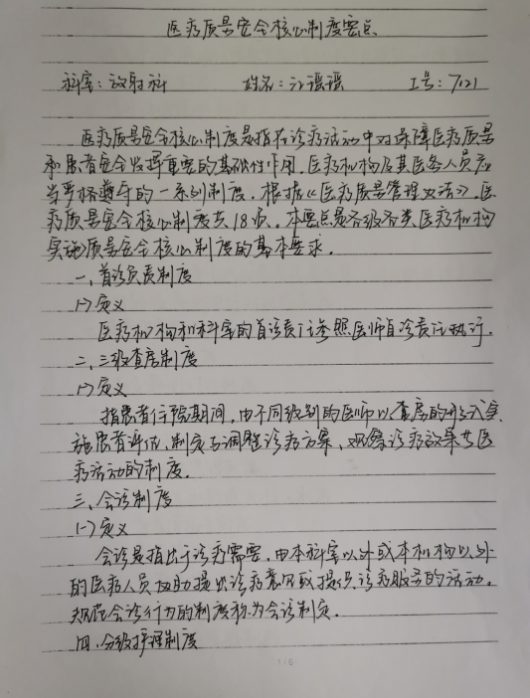 医疗质量安全核心制度要点
科室：放射科 姓名：江瑶瑶 工号：7021
医疗质量安全核心制度是指在诊疗活动中对保障医疗质量
和患者安全发挥重要的基础性作用，医疗机构及其医务人员应
当严格遵守的一系列制度。根据《医疗质量管理办法》，医
疗质量安全核心制度共18项。本要点是各级各类医疗机构
实施质量安全核心制度的基本要求。
一、首诊负责制度
(一)定义
医疗机构和科室的首诊责任参照医师首诊责任执行。
二、三级查房制度
(一)定义
指患者住院期间，由不同级别的医师以查房的形式实
施患者评估、制定与调整诊疗方案、观察诊疗效果等医
疗活动的制度。
三、会诊制度
(一)定义
会诊是指出于诊疗需要，由本科室以外或本机构以外
的医务人员协助提出诊疗意见或提供诊疗服务的活动。
规范会诊行为的制度称为会诊制度。
四、分级护理制度